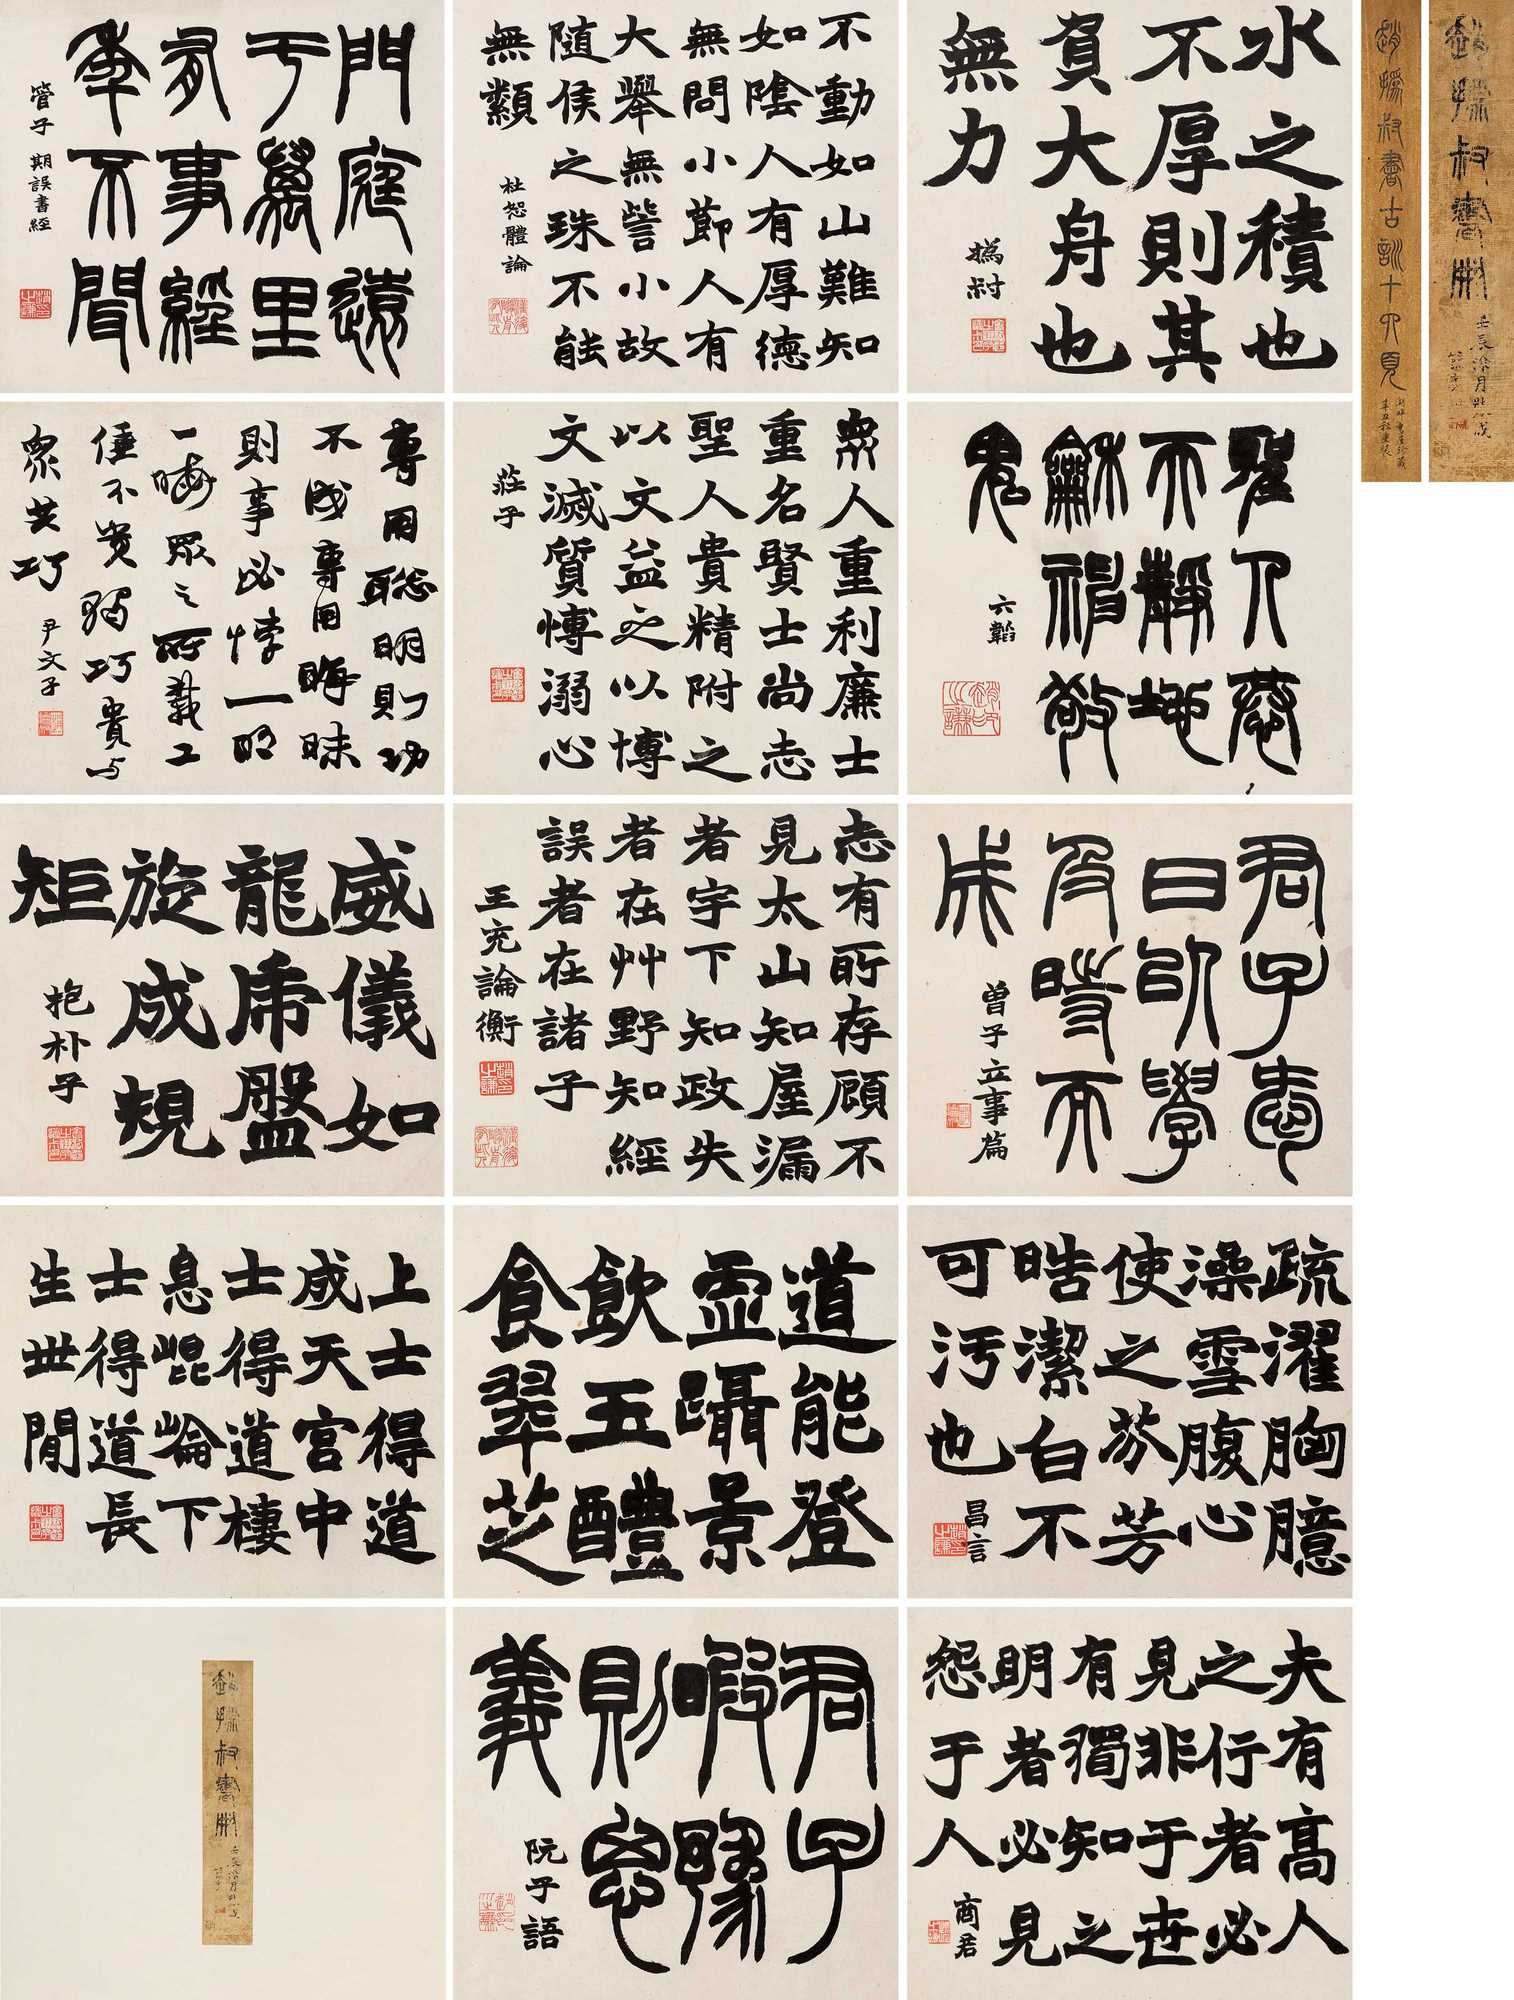 趙撝叔書冊
壬辰
趙撝叔書古訓十四頁
水之積也
不厚則其
負大舟也
無力
撝叔
不動如山難知
如陰人有厚德
無問小節人有
大舉無訾小故
隨侯之珠不能
無纇
杜恕體論
門庭遠
于萬里
有事經
年不聞
管子
期誤書經
聖人慈
天靜地
龢神敬
鬼
六韜
眾人重利廉士
重名賢士尚志
聖人貴精附之
以文益之以博
文滅質博溺心
莊子
專用聰明則功
不成專用晦昧
則事必悖一明
一晦眾之所載工
倕不貴獨巧貴與
眾共巧
尹文子
君子愛
日以學
及時而
成
曾子立事篇
志有所存顧不
見太山知屋漏
者宇下知政失
者在艸野知經
誤者在諸子
王充論衡
威儀如
龍虎盤
旋成規
矩
抱朴子
疏濯胸臆
澡雪腹心
使之芬芳
皓潔白不
可污也
昌言
道能登
虛躡景
飲五醴
食翠芝
上士得道
成天宮中
士得道棲
息崐崘下
士得道長
生世間
夫有高人
之行者必
見非于世
有獨知之
明者必見
怨于人
商君
君子
暇豫
則思
義
阮子語
趙撝叔書冊
壬辰